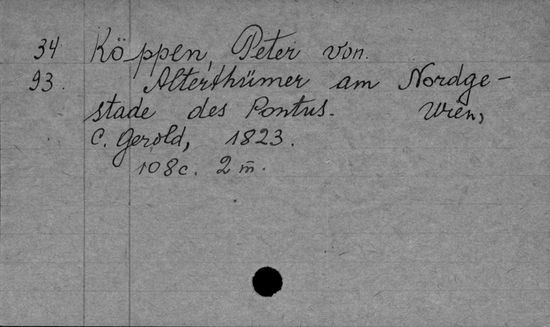 34 Köppen, Peter von.
93. Alterthümer am Nordge-
stade des Pontus. Wien,
C. Gerold, 1823.
108c. 2 m̄.